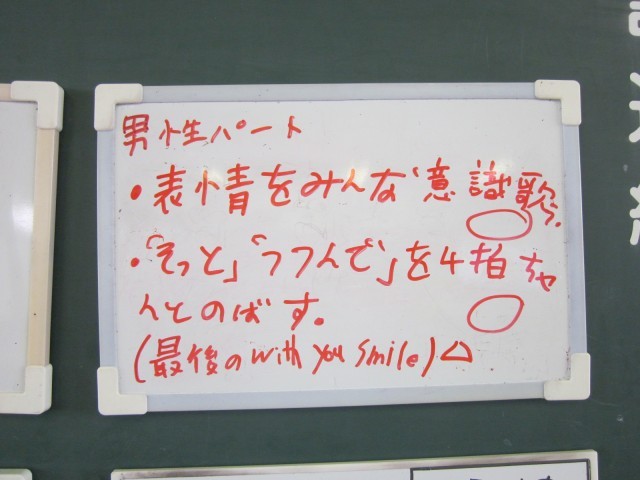 男性パート
・表情をみんな意識歌う。
・「そっと」「つつんで」を4拍ちゃ
んとのばす。
(最後の with you smile)△